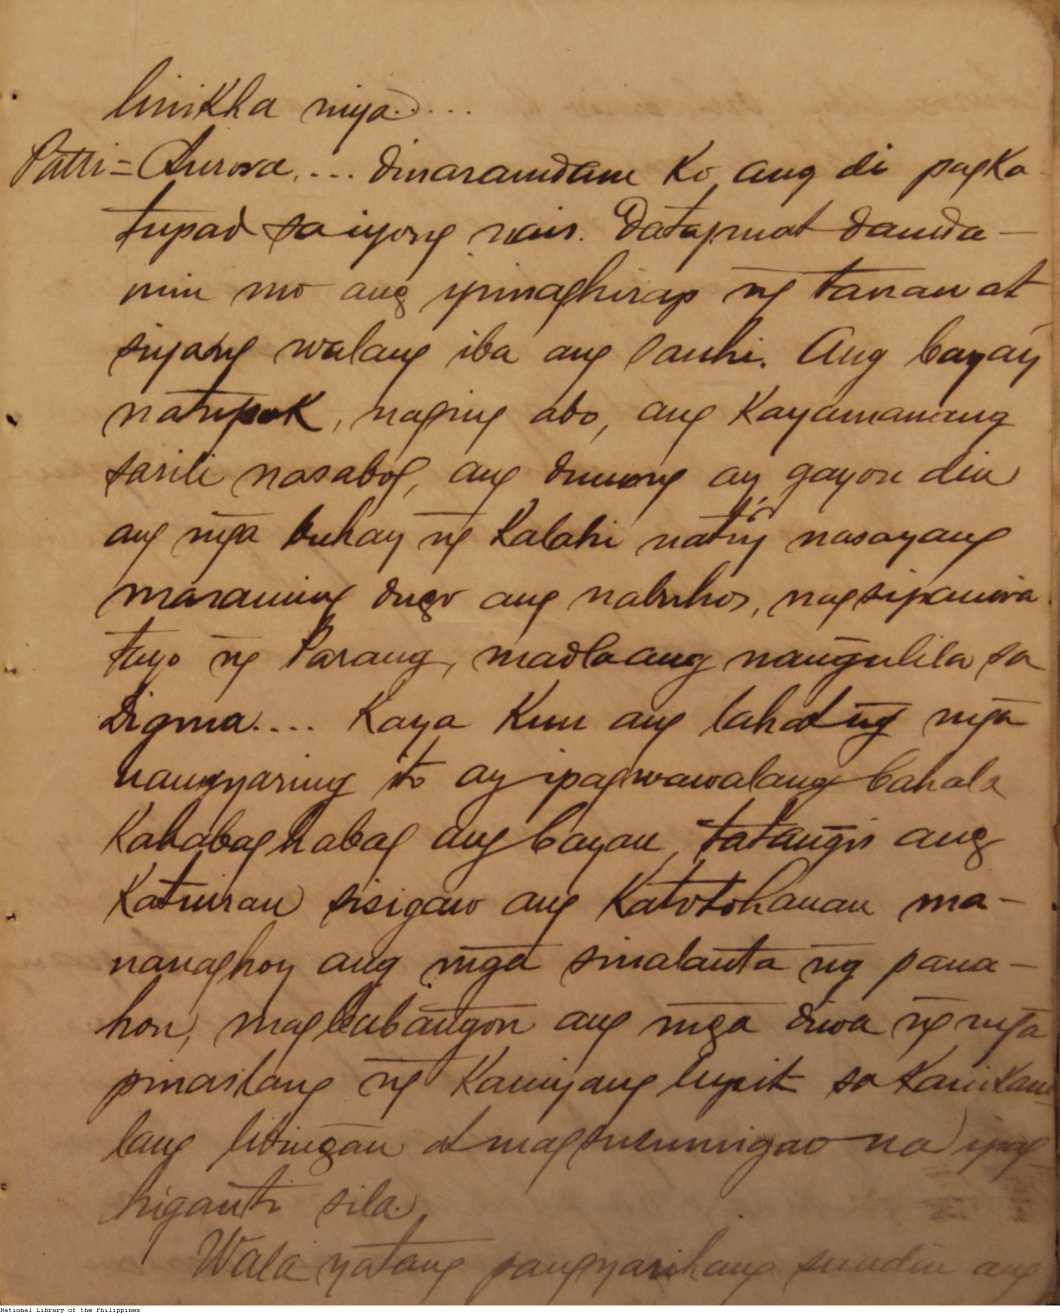 linikha niya....
Patri = Aurora.... dinaramdam ko ang di pagka-
tupad sa iyong nais. Datapuat damda-
min mo ang ipinaghirap ng tanan at
siyang walang iba ang sanhi. Ang bayay
natupok, naging abo, ang kayamanang
sarili nasabog, ang dunong ay gayon din
ang mga buhay ng kalahi natiy nasayang
maraming dugo ang nabuhos, nagsipanira
tuyo ng Parang, madlaang nangulila sa
Digma.... Kaya kun ang lahat ng mga
nangyaring ito ay ipagwawalang bahala
kahabaghabag ang bayan, tatangis ang
katuiran sisigaw ang katotohanan ma-
nanaghoy ang mga sinalanta ng pana-
hon, magbabangon ang mga diwa ng mga
pinaslang ng kaniyang lupit sa kanikani-
lang libingan at magsusumigaw na ipag-
higanti sila.
Wala yatang pangyarihang sundin ang
National Library of the Philippines